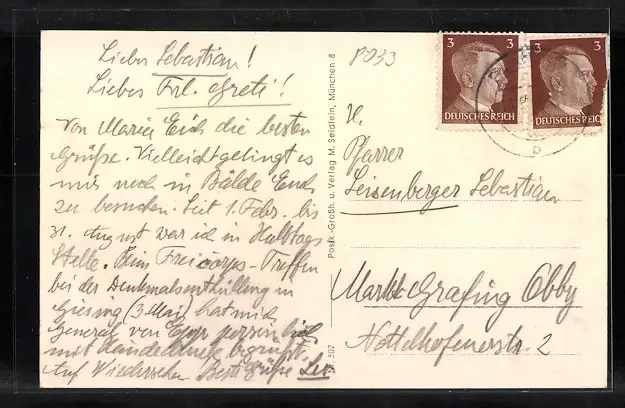 Lieber Sebastian!
Liebes Frl. Greti!
Von Maria Eich die besten
Grüße. Vielleicht gelingt es
mir noch in Bälde Euch
zu besuchen. Seit 1. Febr. bis
31. August war ich in Halbtags
Stelle. Beim Freicorps-Treffen
bei der Denkmalsenthüllung in
Giesing (3. Mai) hat mich
General von Epp persönlich
mit Händedruck begrüßt.
Auf Wiedersehen Beste Grüße
Postk.-Großh. u. Verlag M. Seidlein, München 8
302
P033
3 3
DEUTSCHES REICH
3
DEUTSCHES REICH
H.
Pfarrer
Leisenberger Sebastian
Markt Grafing Obby
Nottelhofenerstr. 2